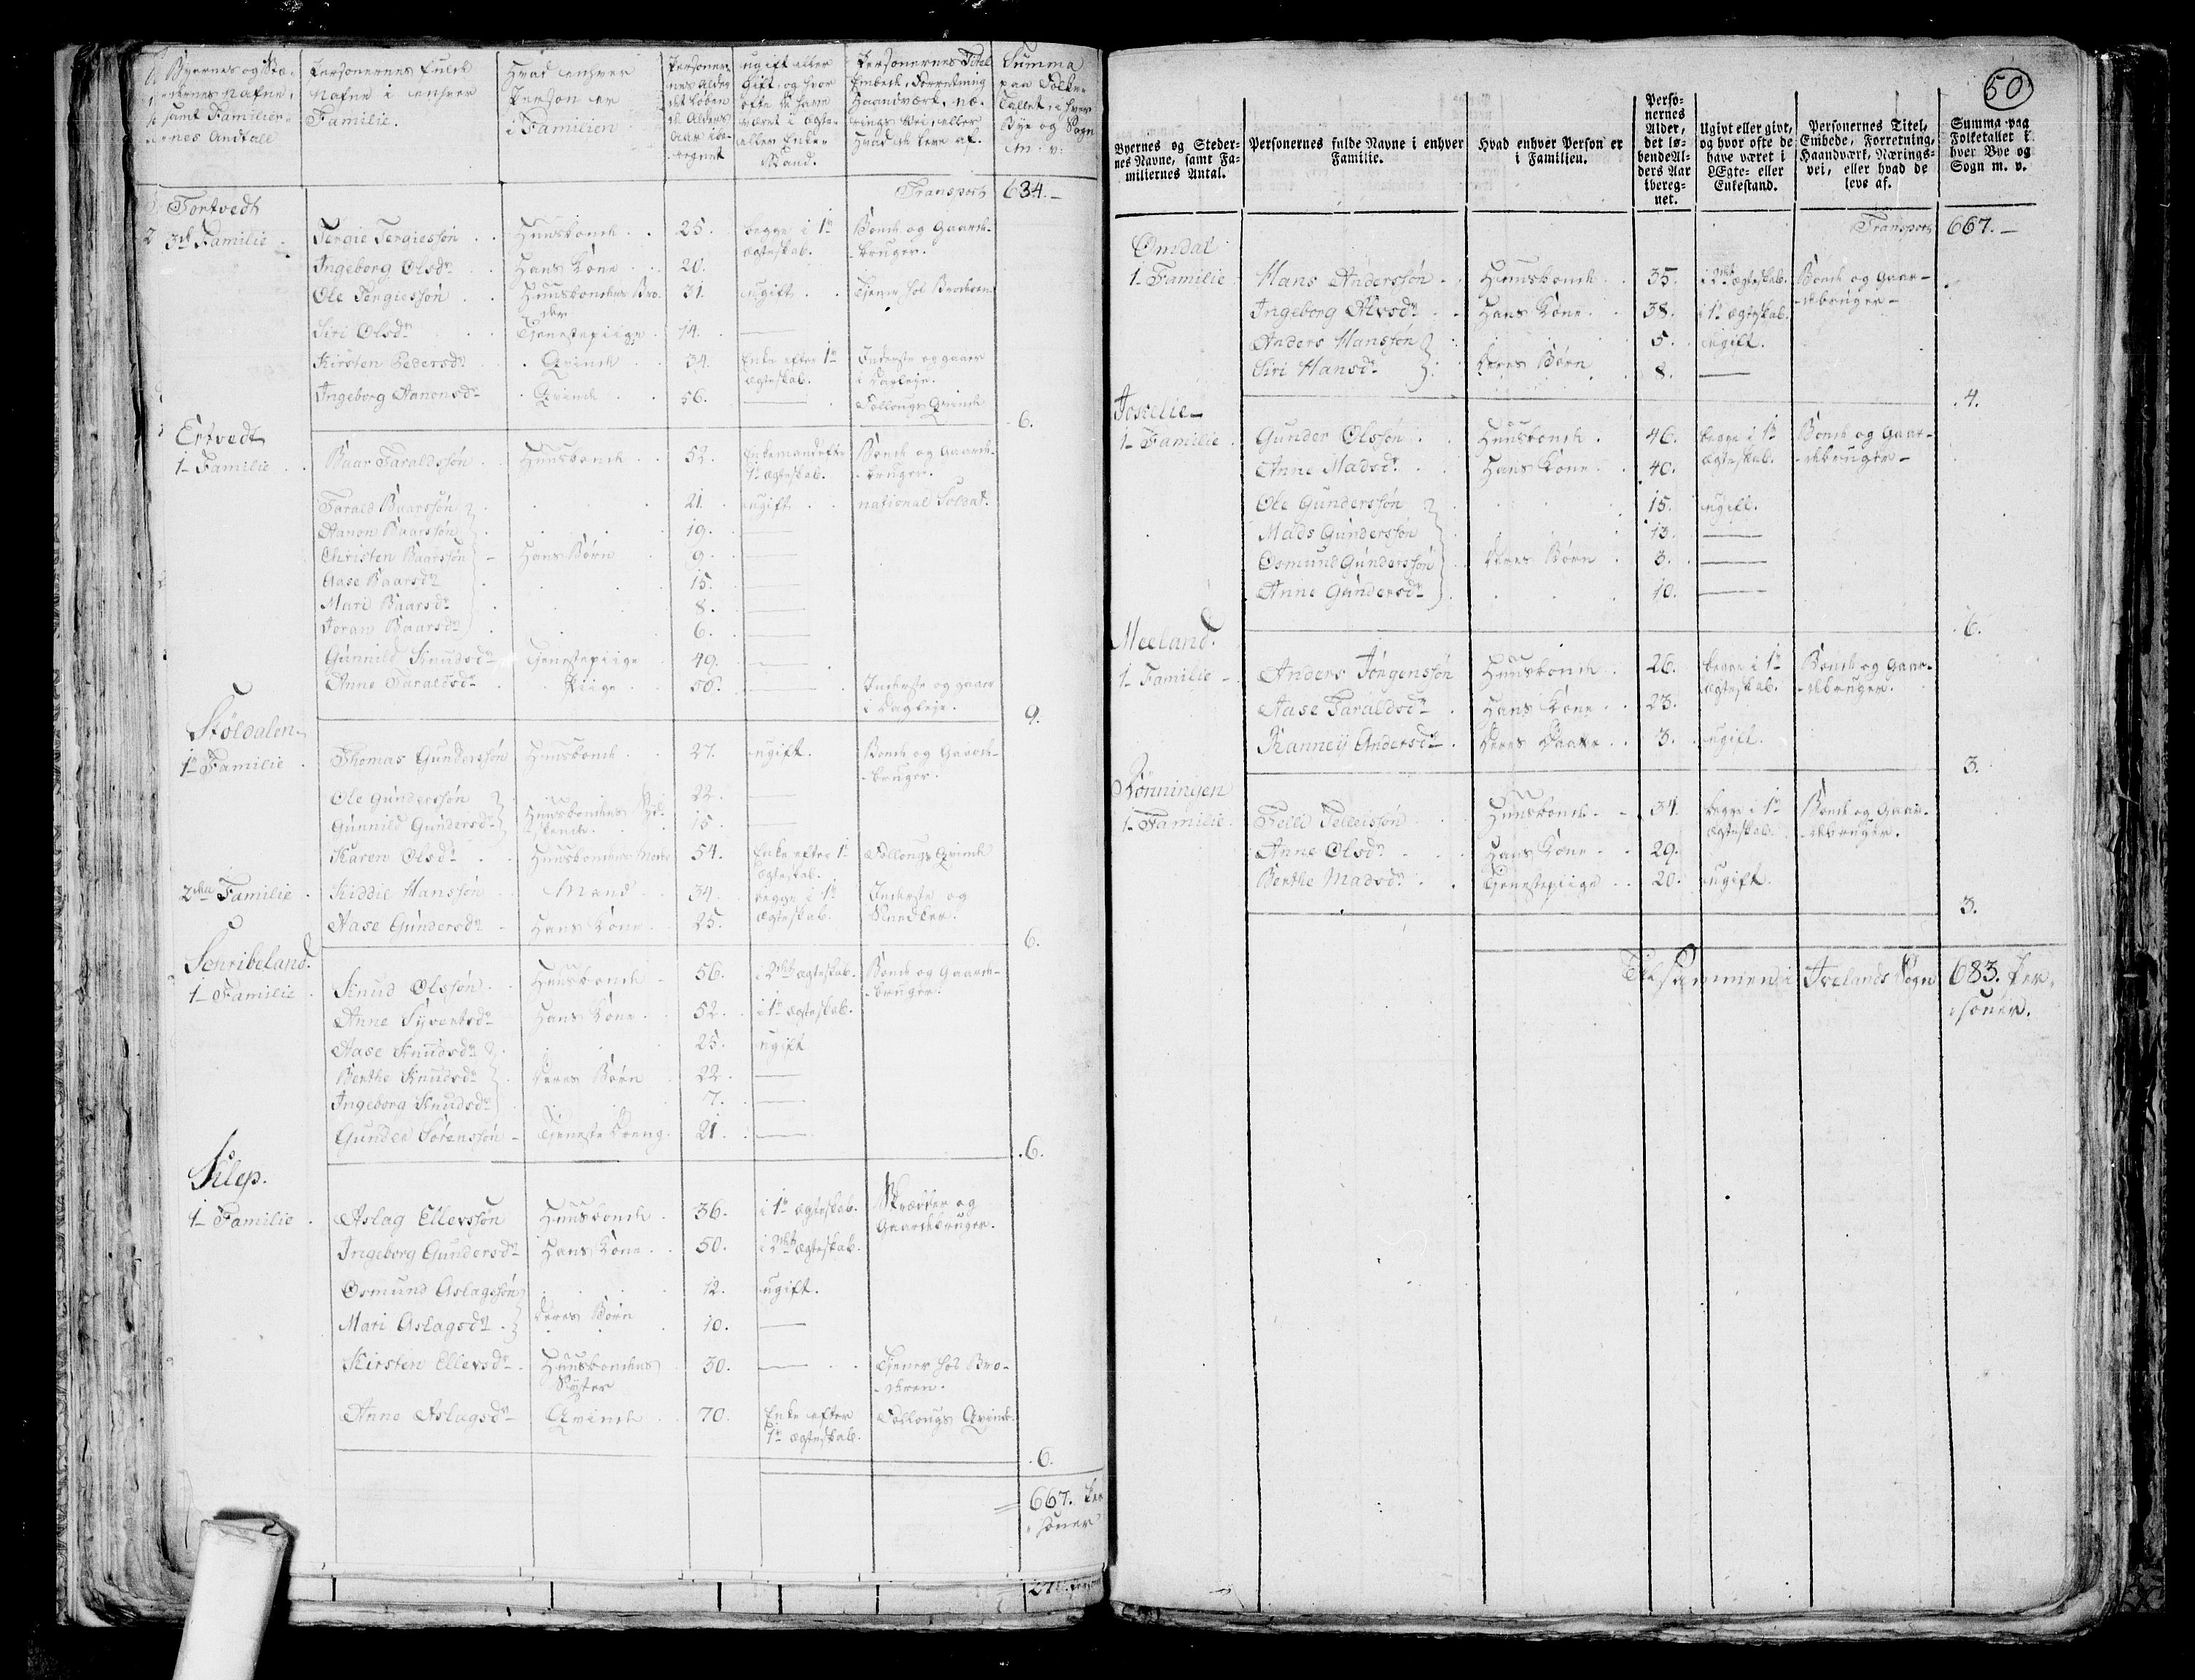 Byernes og Stæ-
dernes Nafne,
samt Familier-
nes Andtall
Personernes fulde
Nafne i enhver
Familie.
Hvad enhver
Person er
i Familien
Personer-
nes Alder
det løben
de Alders
Aar ibe-
regnet
ugift eller
Gift, og hvor
ofte de have
været i Ægte-
eller Enke-
Stand.
Personernes Titel
Embede, Forretning
Haandværk, næ-
rings Vei, eller
hvad de leve af.
Summa
paa Folke-
Tallet i hver
Bye og Sogn
m. v.
Transport 634.-
Tortvedt
3de Familie Tergie Tergiessøn Huusbonde 25. begge i 1te Bonde og Gaarde-
ægteskab. bruger.
Ingeborg Olsdr Hans Kone 20.
Ole Tergiessøn Huusbondens Bro- 31. ugift Tiener hos Broderen
der
Siri Olsdr Tienestepiige 14. —
Kirsten Pedersdr Qvinde 34. Enke efter 1te Inderste og gaaer
ægteskab. i Dagleje.
Ingeborg Aanonsdr Qvinde 56. — Follougs Qvinde
6.
Ertvedt
1- Familie Baar Taraldssøn Huusbonde 52. Enkemand efter Bonde og Gaarde-
1te ægteskab. bruger.
Tarald Baarssøn 21. ugift national Soldat.
Aanon Baarssøn 19. —
Christen Baarssøn Hans Børn 9. —
Aase Baarsdr 15. —
Mari Baarsdr 8. —
Joran Baarsdr 6. —
Gunnild Knudsdr Tienestepiige 49. —
Anne Taraldsdr Piige 50. — Inderste og gaaer
i Dagleje.
9.
Stöldalen
1te Familie Thomas Gunderssøn Huusbonde 27. ugift. Bonde og Gaarde-
bruger.
Ole Gunderssøn 22. —
Gunnild Gundersdr Huusbondens Syd- 15. —
skende.
Karen Olsdr Huusbondens Moder 54. Enke efter 1te Follougs Qvinde
ægteskab.
2den Familie Kiddil Hanssøn Mand 34. begge i 1te Inderste og
Aase Gundersdr Hans Kone 25. ægteskab. Snedker.
6.
Schribeland.
1- Familie Knud Olssøn Huusbonde 56. i 2det ægteskab. Bonde og Gaarde-
bruger.
Anne Syvertsdr Hans Kone 52. i 1te ægteskab.
Aase Knudsdr 25. ugift
Berthe Knudsdr Deres Børn 22. —
Ingeborg Knudsdr 7. —
Gunder Sørenssøn Tieneste Dreng. 21. —
6.
Klep.
1- Familie Aslag Ellevssøn Huusbonde 36. i 1te ægteskab. Skrædder og
Gaardebruger.
Ingeborg Gundersdr Hans Kone 50. i 2det ægteskab.
Osmund Aslagssøn 12. ugift.
Mari Aslagsdr Deres Børn 10. —
Kirsten Ellevsdr Huusbondens 30. — Tiener hos Bro-
Syster deren.
Anne Aslagsdr Qvinde 70. Enke efter Follougs Qvinde.
1te ægteskab.
6.
667. Per-
soner
50
Byernes og Steder-
nes Navne, samt Fa-
miliernes Antal.
Personernes fulde Navne i enhver
Familie.
Hvad enhver Person er
i Familien.
Perso-
nernes
Alder,
det lø-
bende Al-
ders Aar
ibereg-
net.
Ugivt eller givt,
og hvor ofte de
have været i
Ægte- eller
Enkestand.
Personernes Titel,
Embede, Forretning,
Haandværk, Nærings-
vei, eller hvad de
leve af.
Summa paa
Folketallet i
hver Bye og
Sogn m. v.
Transport 667.-
Omdal
1- Familie Hans Anderssøn Huusbonde 35. i 2det ægteskab. Bonde og Gaar-
Ingeborg Alvsdr Hans Kone 38. i 1te ægteskab. debruger
Anders Hanssøn 5. ugift.
Siri Hansdr Deres Børn 8. —
4.
Joskelie
1- Familie Gunder Olssøn Huusbonde 46. begge i 1te Bonde og Gaar-
Anne Madsdr Hans Kone 40. ægteskab. debruger
Ole Gunderssøn 15. ugift.
Mads Gunderssøn 13. —
Osmund Gunderssøn Deres Børn 3. —
Anne Gundersdr 10. —
6.
Meeland.
1- Familie Anders Jørgenssøn Huusbonde 26. begge i 1te Bonde og Gaar-
ægteskab. debruger.
Aase Taraldsdr Hans Kone 23.
Ranney Andersdr Deres Daatter 3. ugift.
3.
Rønningen
1- Familie Tellef Tellefssøn Huusbonde 31. begge i 1te Bonde og Gaar-
ægteskab. debruger.
Anne Olsdr Hans Kone 29.
Berthe Madsdr Tienestepiige 20. ugift.
3.
Tilsammen i Ivelands Sogn 683. Per-
soner.